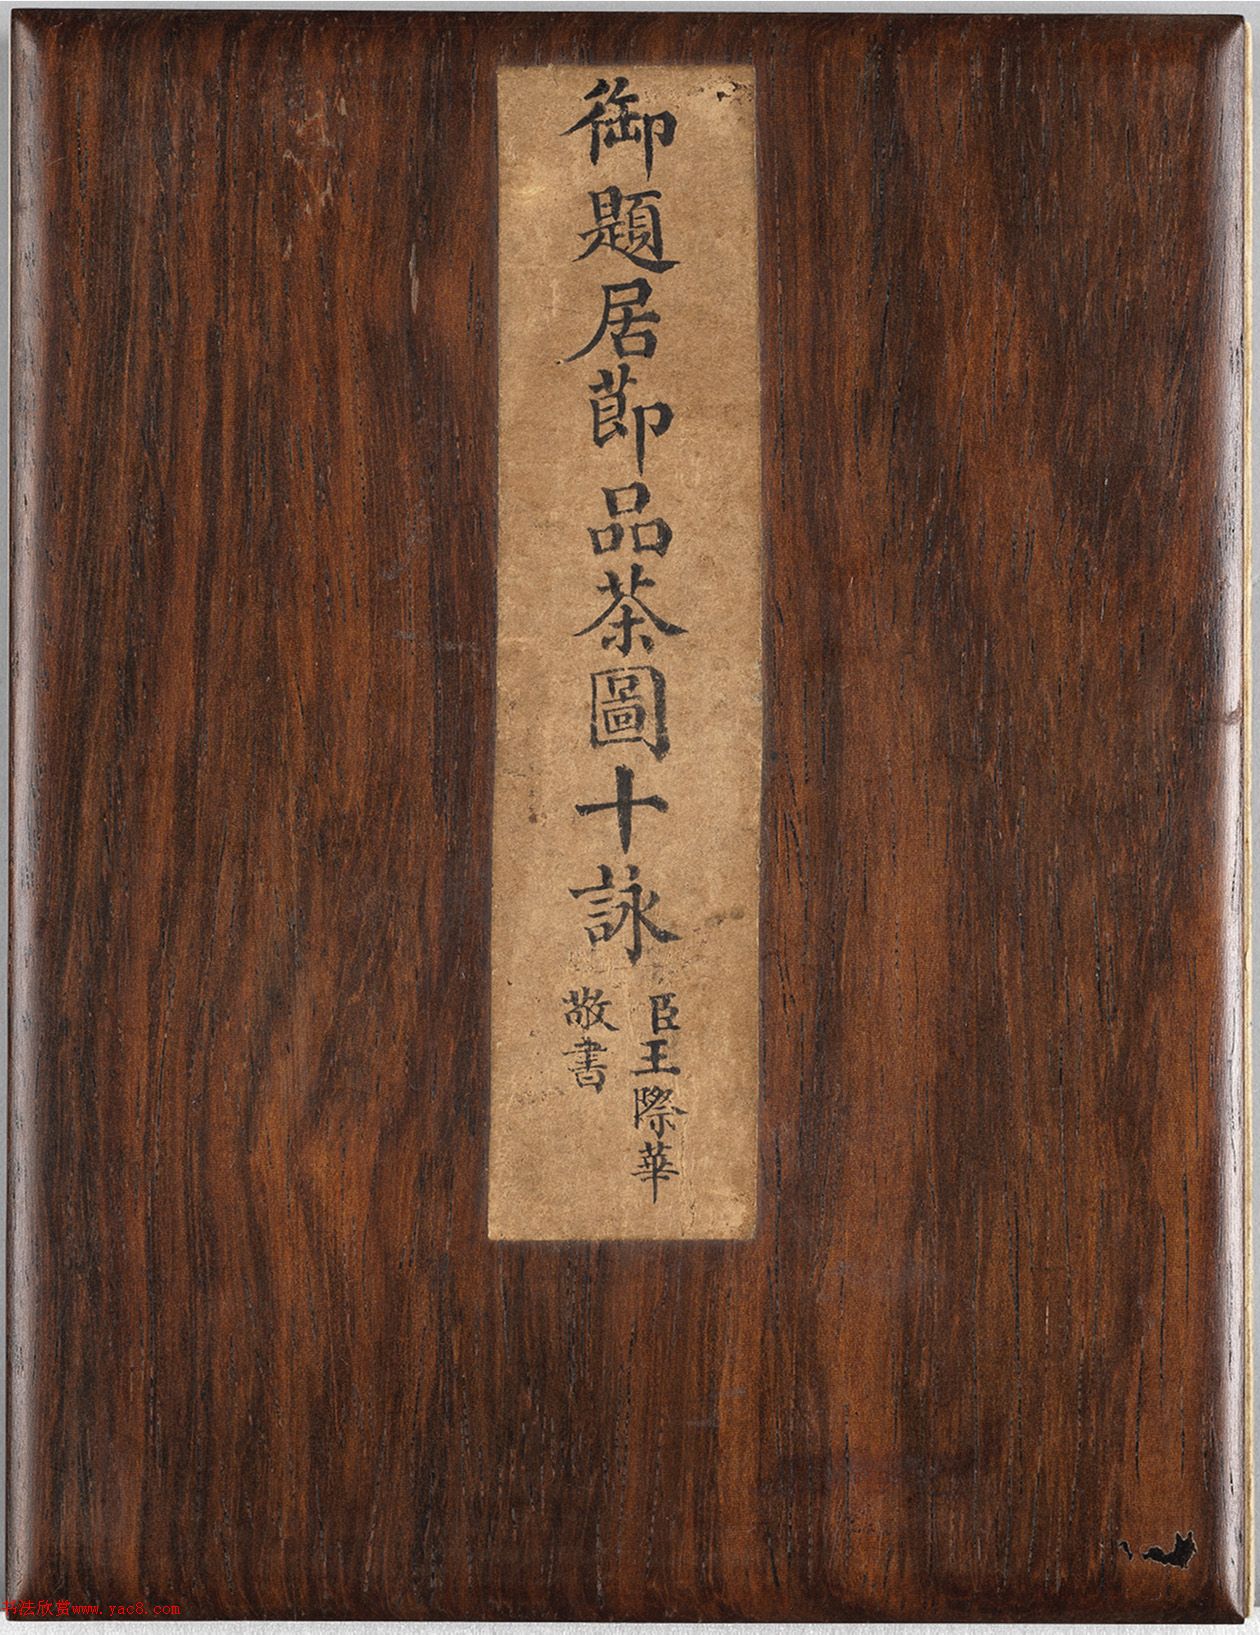 御題居節品茶圖十詠
臣王際華
敬書
书法欣赏www.yac8.com